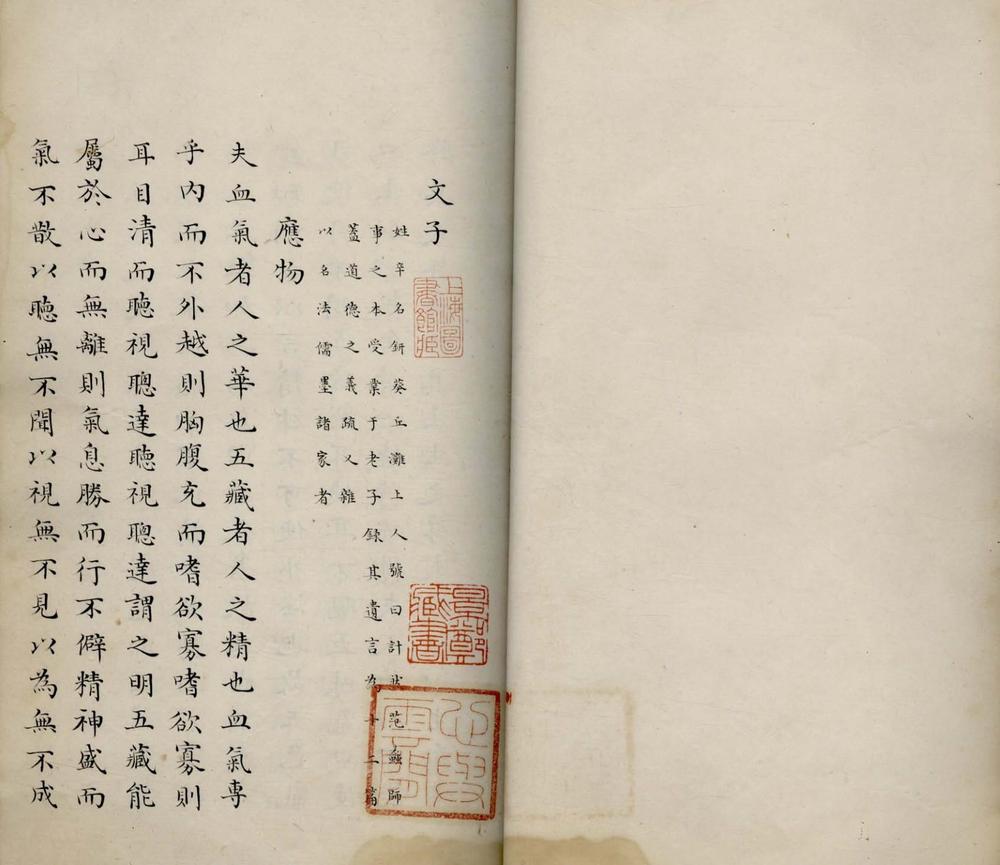 文子
姓辛名鈃葵丘灘上人號曰計然范蠡師
事之本受業于老子錄其遺言為十二篇
蓋道德之義疏又雜
以名法儒墨諸家者
應物
夫血氣者人之華也五藏者人之精也血氣專
乎內而不外越則胸腹充而嗜欲寡嗜欲寡則
耳目清而聽視聰達聽視聰達謂之明五藏能
屬於心而無離則氣息勝而行不僻精神盛而
氣不散以聽無不聞以視無不見以為無不成
上海圖
書館藏
景鄭
藏書